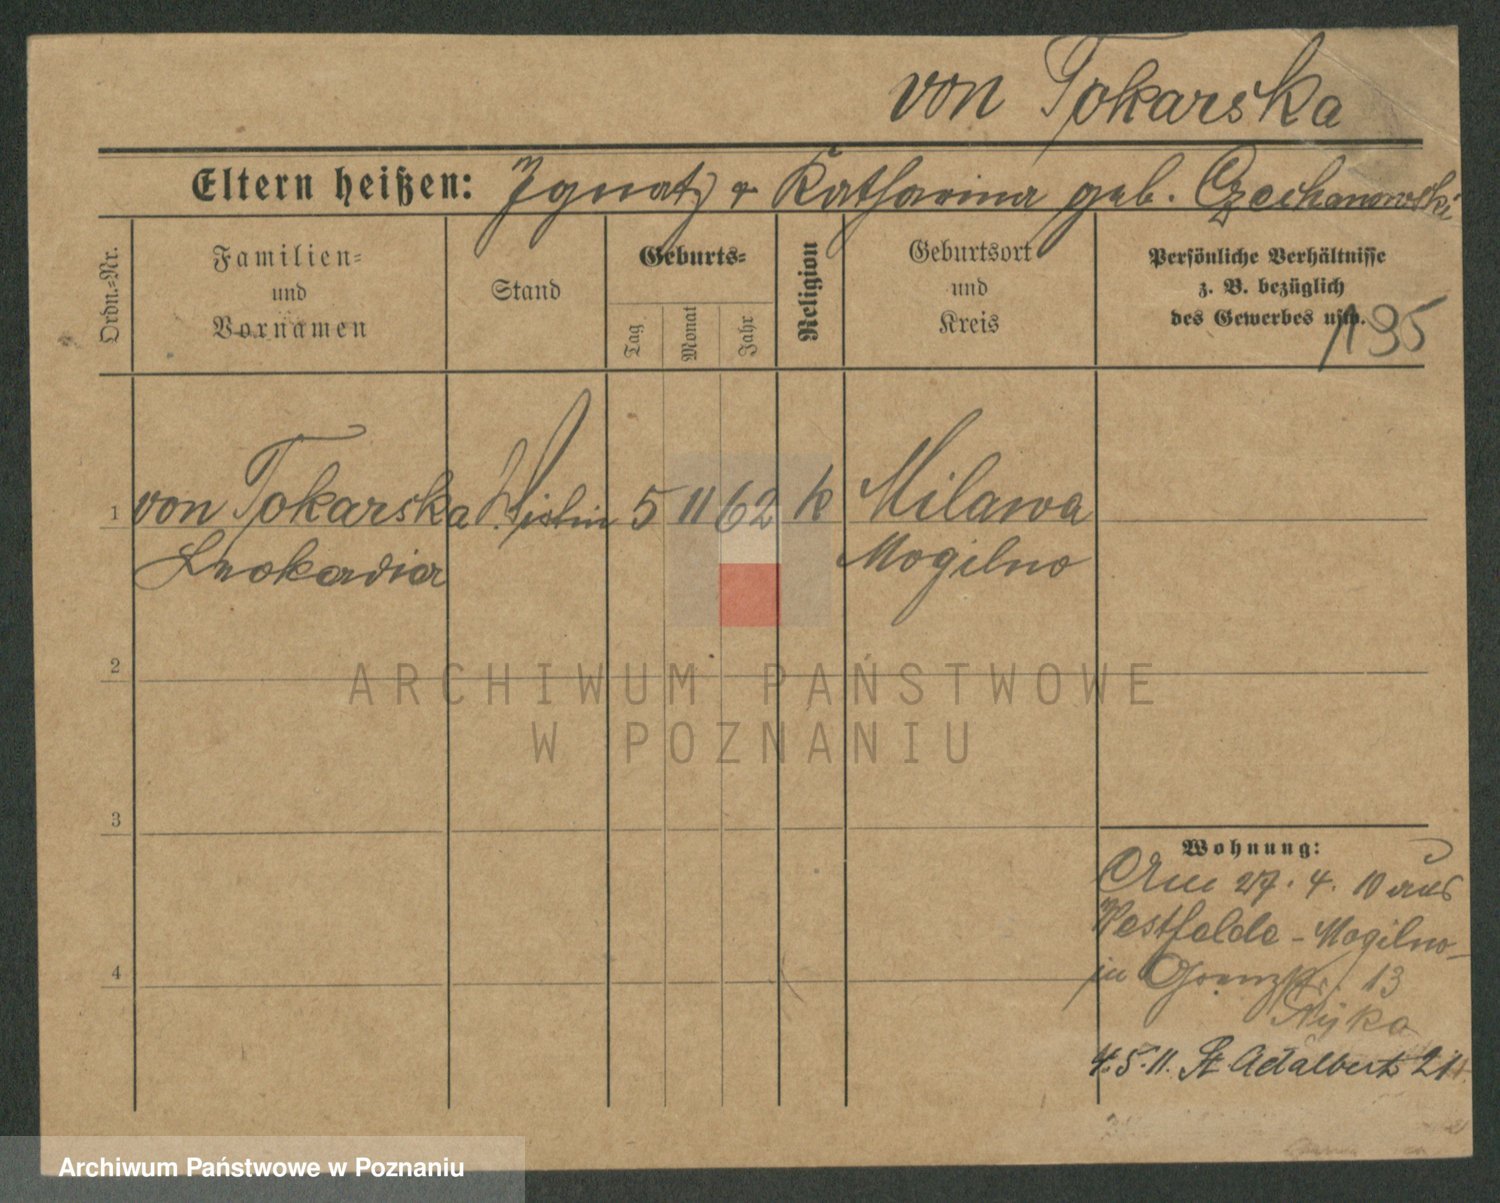 von Tokarska
Eltern heißen: Ignatz + Katharina geb. Czechanowski
Ordn.-Nr.
Familien-
und
Vornamen
Stand
Geburts-
Tag
Monat
Jahr
Religion
Geburtsort
und
Kreis
Persönliche Verhältnisse
z. B. bezüglich
des Gewerbes usw.
195
1 von Tokarska 5 11 62 k Milawa
Leokadia Mogilno
2
ARCHIWUM PAŃSTWOWE
W POZNANIU
3
Wohnung:
27. 4. 10 aus
Westfelde - Mogilno
in Grenzstr. 13
4
4.5.11. St Adalbert 21
Archiwum Państwowe w Poznaniu